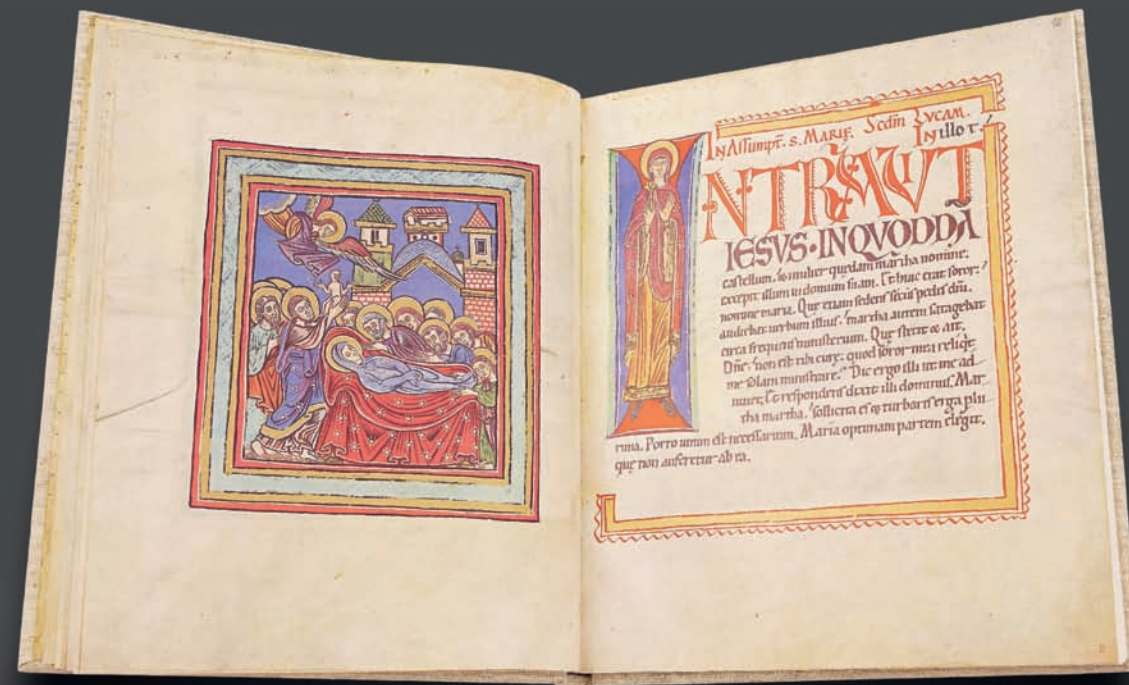 IN ASSumpt̄. S. MARIĘ. Scdm̄ LVCAM.
IN illo t.
INTRAVIT
IESVS·IN QVODDĀ
castellum. & mulier quędam martha nomine.
excepit illum in domum suam. Et huic erat soror
nomine maria. Quę etiam sedens secus pedes dn̄i.
audiebat verbum illius. martha autem satagebat
circa frequens ministerium. Quę stetit & ait.
Dn̄e. non est tibi curę. quod soror mea reliq̇t
me solam ministrare. Dic ergo illi ut me ad
iuuet. Et respondens dixit illi dominus. Mar
tha martha. sollicita es & turbaris erga plu
rima. Porro unum est necessarium. Maria optimam partem elegit.
quę non auferetur ab ea.